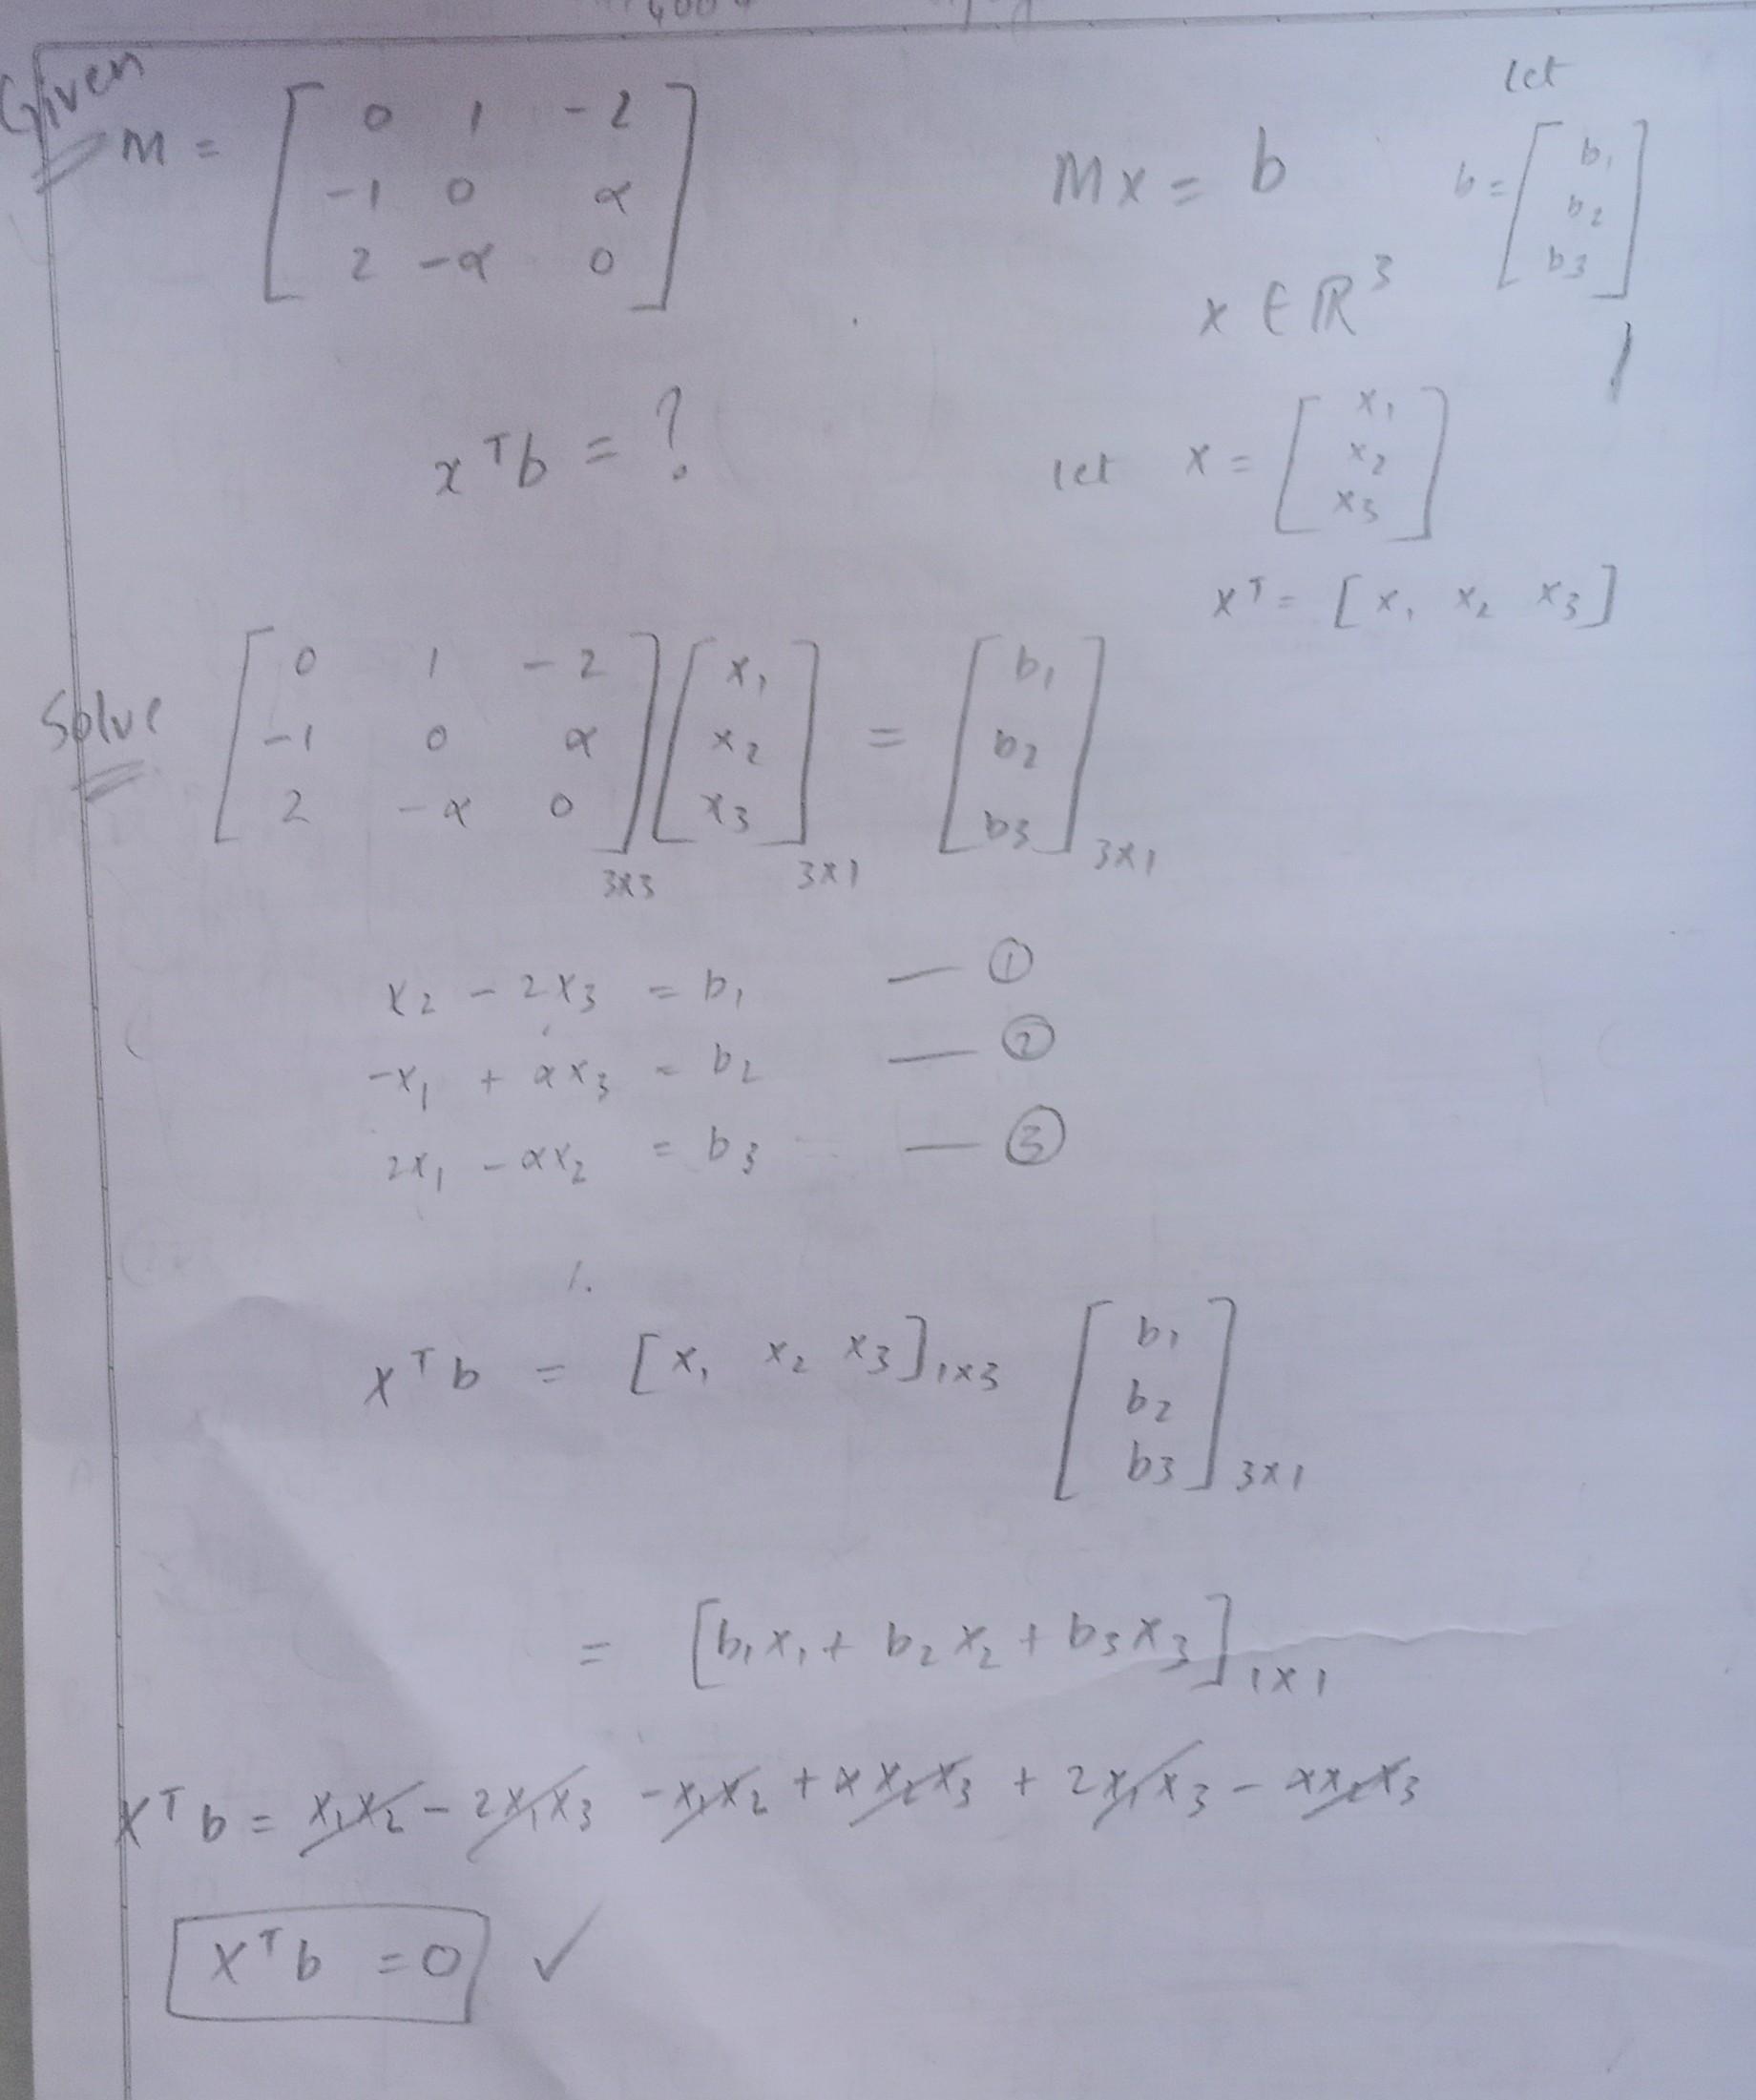 Given
M = [ 0 1 -2
-1 0 α
2 -α 0 ]
Mx = b
let
b = [ b₁
b₂
b₃ ]
x ∈ ℝ³
xᵀb = ?
let x = [ x₁
x₂
x₃ ]
xᵀ = [ x₁ x₂ x₃ ]
Solve
[ 0 1 -2
-1 0 α
2 -α 0 ]₃ₓ₃ [ x₁
x₂
x₃ ]₃ₓ₁ = [ b₁
b₂
b₃ ]₃ₓ₁
x₂ - 2x₃ = b₁ — ①
-x₁ + αx₃ = b₂ — ②
2x₁ - αx₂ = b₃ — ③
xᵀb = [ x₁ x₂ x₃ ]₁ₓ₃ [ b₁
b₂
b₃ ]₃ₓ₁
= [ b₁x₁ + b₂x₂ + b₃x₃ ]₁ₓ₁
xᵀb = x₁x₂ - 2x₁x₃ - x₁x₂ + αx₂x₃ + 2x₁x₃ - αx₂x₃
xᵀb = 0 ✓